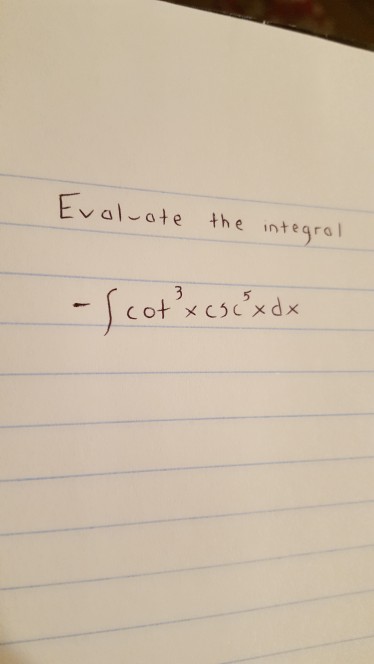 Evaluate the integral
- ∫ cot³x csc⁵x dx